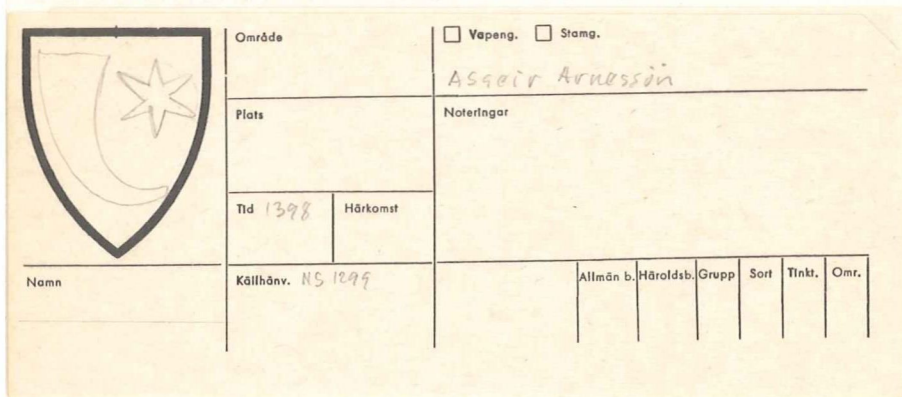 Område
☐ Vapeng. ☐ Stamg.
Asgeir Arnessön
Plats
Noteringar
Tid 1398
Härkomst
Namn
Källhänv. NS 1299
Allmän b. Häroldsb. Grupp Sort Tinkt. Omr.